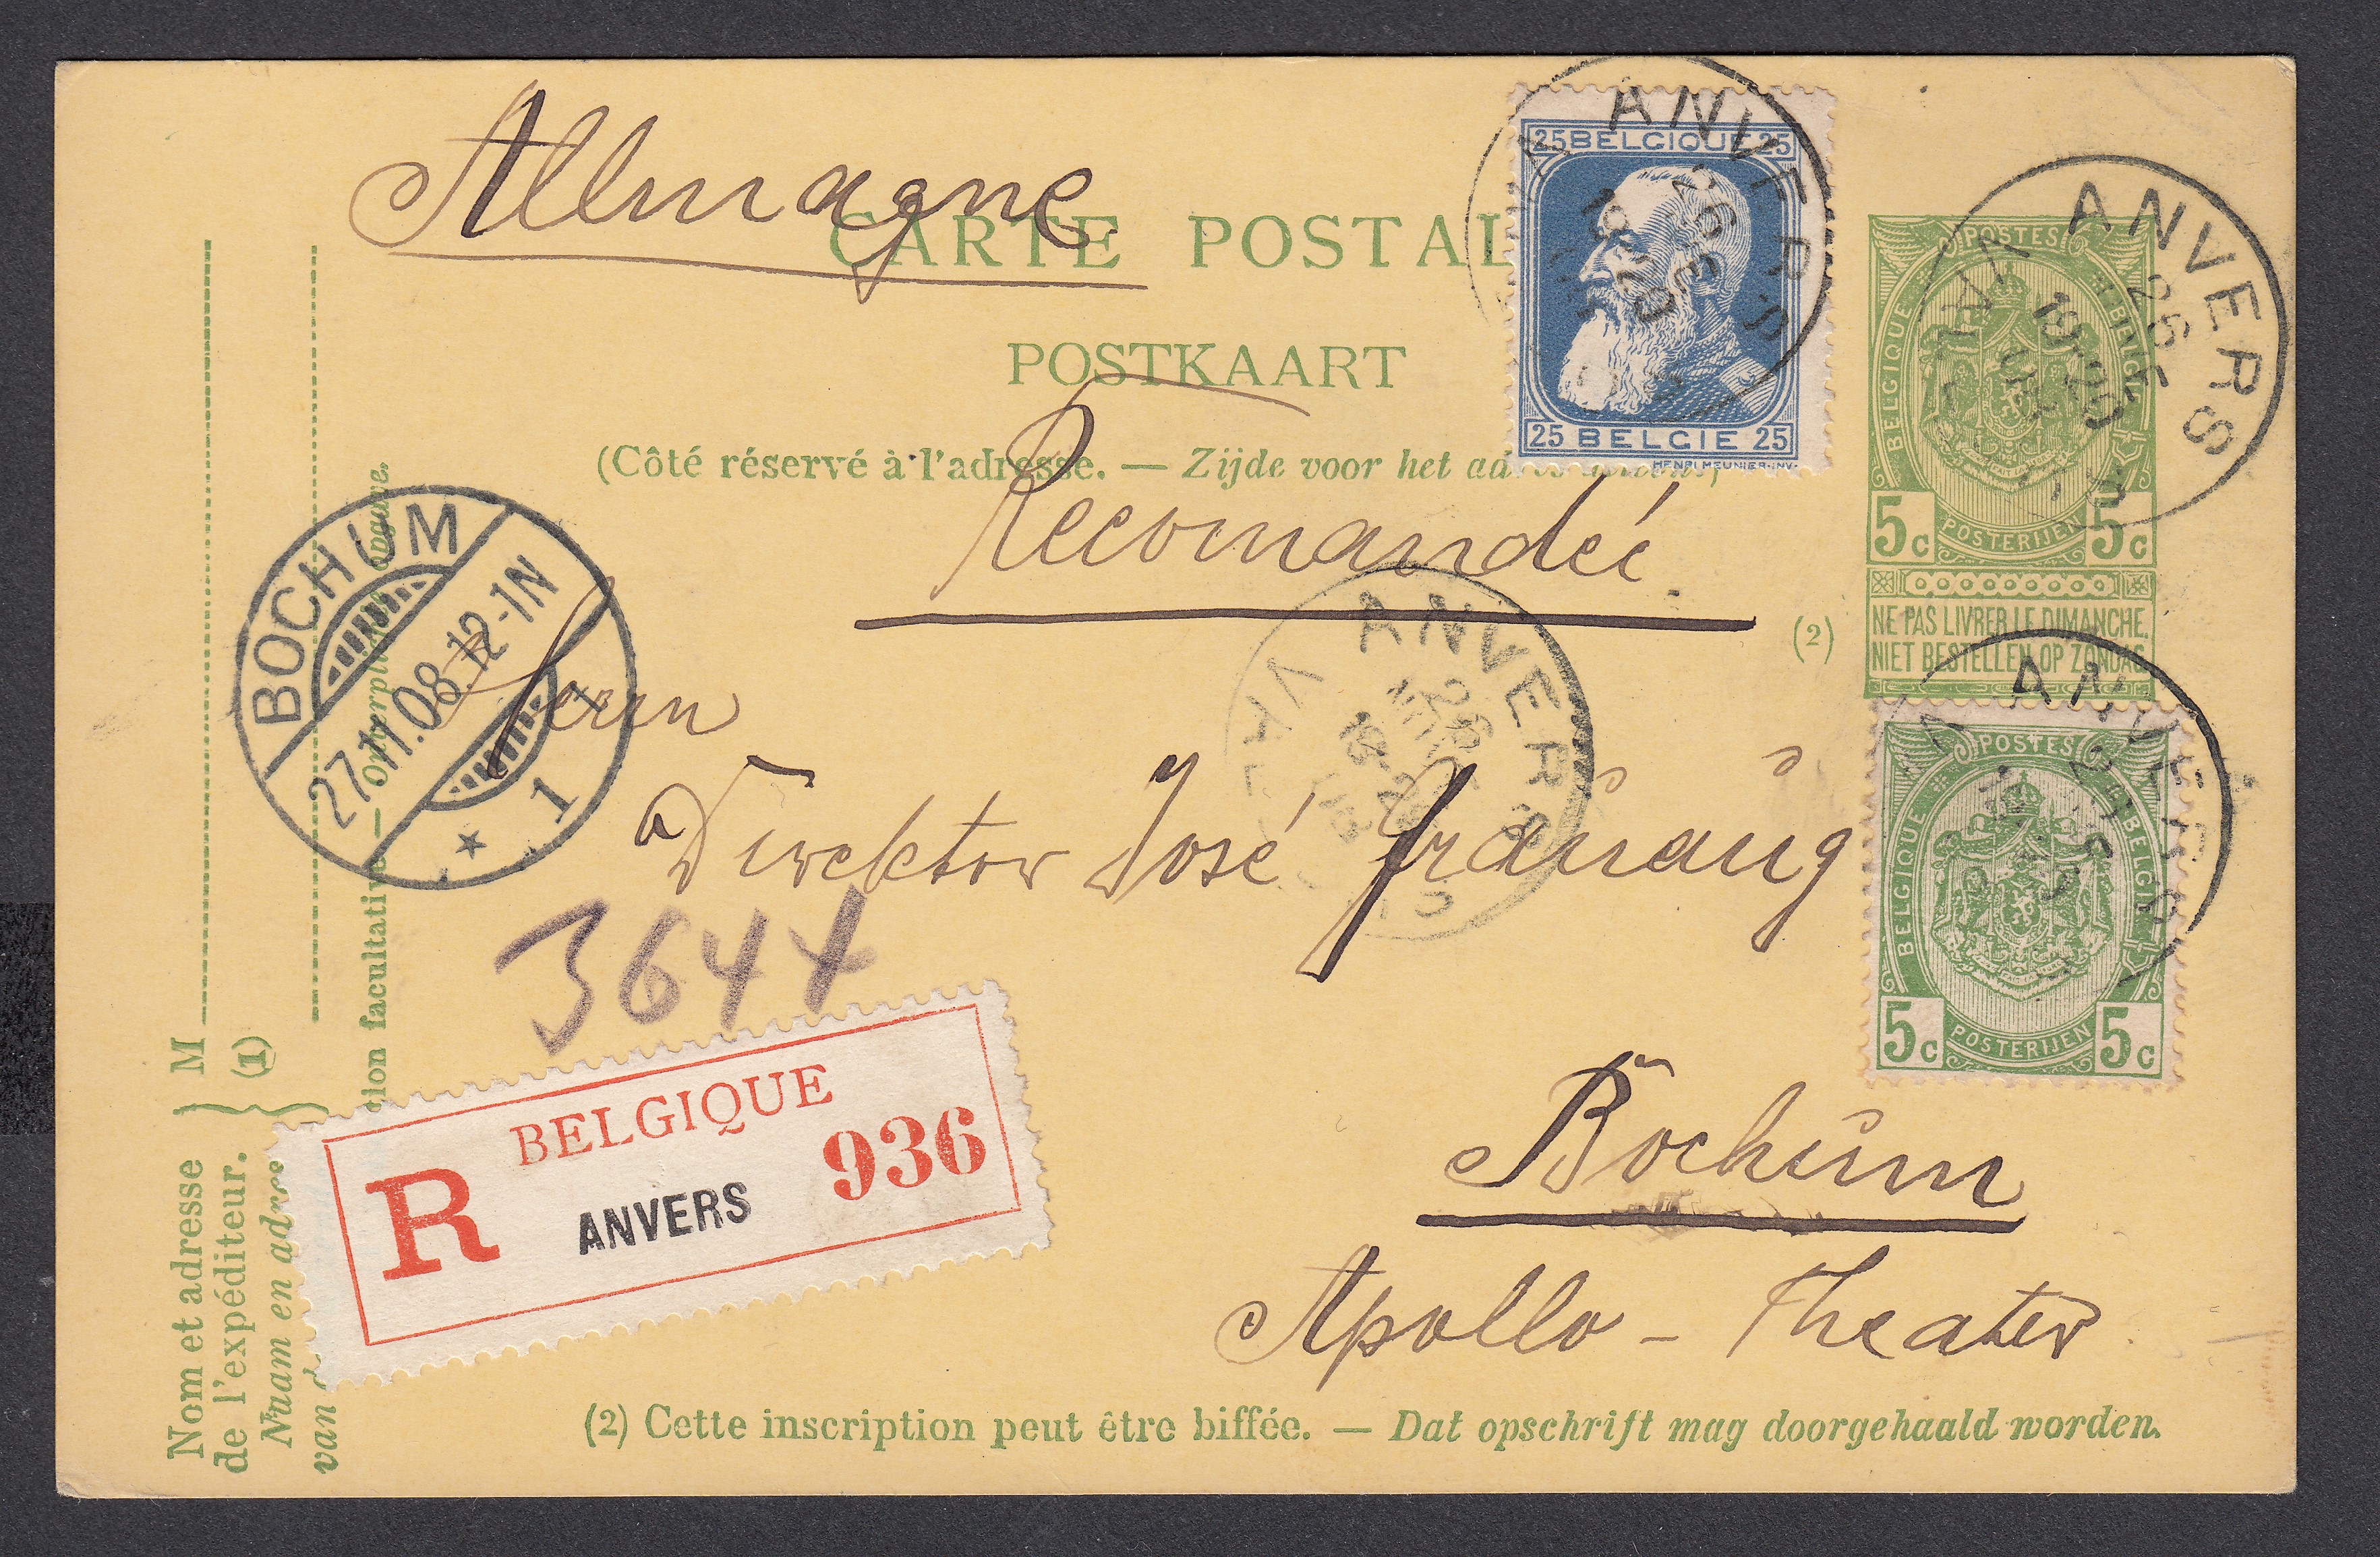 Allemagne
CARTE POSTAL
POSTKAART
(Côté réservé à l'adresse. — Zijde voor het
Recomandée
(2)
Herrn
Direktor José
3644
Bochum
Apollo - Theater
(2) Cette inscription peut être biffée. — Dat opschrift mag doorgehaald worden.
25 BELGIQUE 25
25 BELGIE 25
HENRI MEUNIER·INV·
ANVERS
26
19-20
POSTES
BELGIQUE BELGIE
5c POSTERIJEN 5c
NE PAS LIVRER LE DIMANCHE.
NIET BESTELLEN OP ZONDAG.
ANVERS
26
19-20
POSTES
BELGIQUE BELGIE
5c POSTERIJEN 5c
ANVERS
ANVERS
26
BOCHUM
27.11.08.12-1N
* 1
BELGIQUE
R 936
ANVERS
M
(1)
Nom et adresse
de l'expéditeur.
Naam en adres
van
facultative